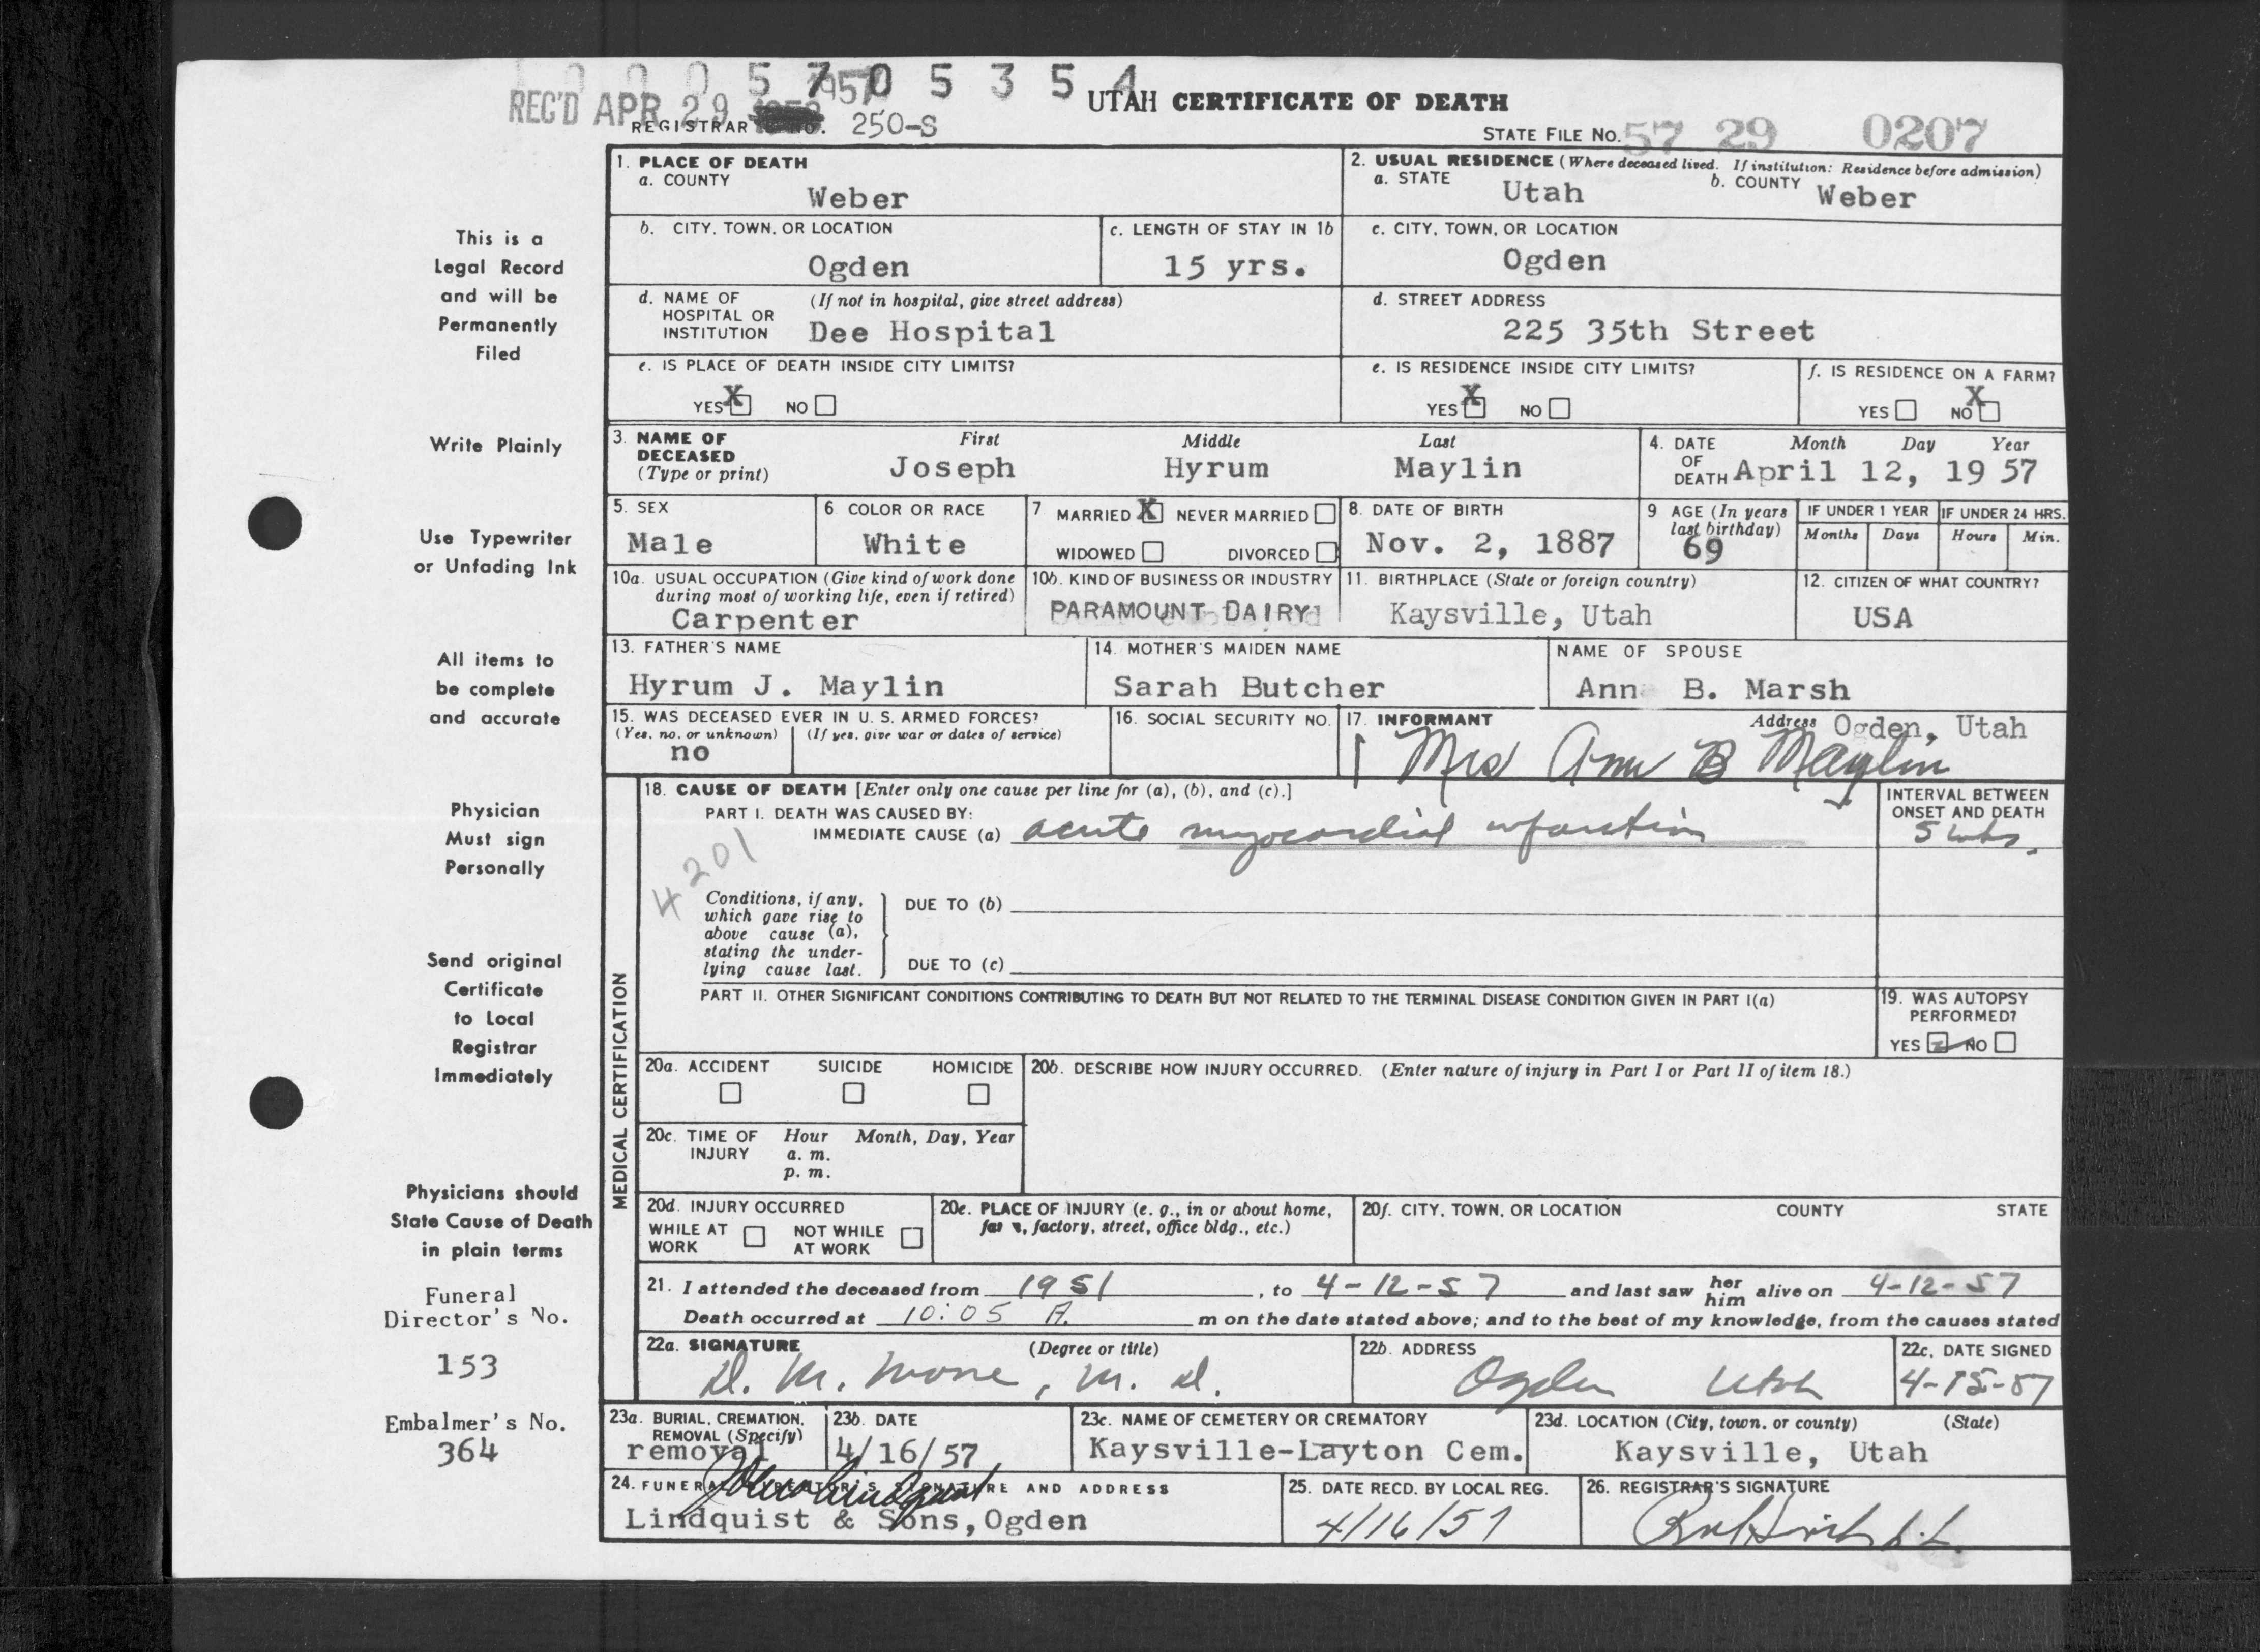 1 0 0 0 5 7 0 5 3 5 4
REC'D APR 29 1957
UTAH CERTIFICATE OF DEATH
REGISTRAR'S NO. 250-S
STATE FILE NO. 57 29 0207
1. PLACE OF DEATH
a. COUNTY
Weber
2. USUAL RESIDENCE (Where deceased lived. If institution: Residence before admission)
a. STATE Utah b. COUNTY Weber
b. CITY, TOWN, OR LOCATION
Ogden
c. LENGTH OF STAY IN 1b
15 yrs.
c. CITY, TOWN, OR LOCATION
Ogden
d. NAME OF HOSPITAL OR INSTITUTION
(If not in hospital, give street address)
Dee Hospital
d. STREET ADDRESS
225 35th Street
e. IS PLACE OF DEATH INSIDE CITY LIMITS?
YES X NO
e. IS RESIDENCE INSIDE CITY LIMITS?
YES X NO
f. IS RESIDENCE ON A FARM?
YES NO X
3. NAME OF DECEASED
(Type or print)
First Middle Last
Joseph Hyrum Maylin
4. DATE OF DEATH
Month Day Year
April 12, 1957
5. SEX
Male
6. COLOR OR RACE
White
7 MARRIED X NEVER MARRIED
WIDOWED DIVORCED
8. DATE OF BIRTH
Nov. 2, 1887
9 AGE (In years last birthday)
69
IF UNDER 1 YEAR
Months Days
IF UNDER 24 HRS.
Hours Min.
10a. USUAL OCCUPATION (Give kind of work done during most of working life, even if retired)
Carpenter
10b. KIND OF BUSINESS OR INDUSTRY
PARAMOUNT DAIRY
11. BIRTHPLACE (State or foreign country)
Kaysville, Utah
12. CITIZEN OF WHAT COUNTRY?
USA
13. FATHER'S NAME
Hyrum J. Maylin
14. MOTHER'S MAIDEN NAME
Sarah Butcher
NAME OF SPOUSE
Ann B. Marsh
15. WAS DECEASED EVER IN U. S. ARMED FORCES?
(Yes, no, or unknown) (If yes, give war or dates of service)
no
16. SOCIAL SECURITY NO.
17. INFORMANT
Address Ogden, Utah
Mrs Ann B Maylin
MEDICAL CERTIFICATION
18. CAUSE OF DEATH [Enter only one cause per line for (a), (b), and (c).]
PART I. DEATH WAS CAUSED BY:
IMMEDIATE CAUSE (a) acute myocardial infarction
INTERVAL BETWEEN ONSET AND DEATH
5 wks.
4201
Conditions, if any, which gave rise to above cause (a), stating the underlying cause last.
DUE TO (b)
DUE TO (c)
PART II. OTHER SIGNIFICANT CONDITIONS CONTRIBUTING TO DEATH BUT NOT RELATED TO THE TERMINAL DISEASE CONDITION GIVEN IN PART I(a)
19. WAS AUTOPSY PERFORMED?
YES NO
20a. ACCIDENT SUICIDE HOMICIDE
20b. DESCRIBE HOW INJURY OCCURRED. (Enter nature of injury in Part I or Part II of item 18.)
20c. TIME OF INJURY
Hour Month, Day, Year
a. m.
p. m.
20d. INJURY OCCURRED
WHILE AT WORK NOT WHILE AT WORK
20e. PLACE OF INJURY (e. g., in or about home, farm, factory, street, office bldg., etc.)
20f. CITY, TOWN, OR LOCATION COUNTY STATE
21. I attended the deceased from 1951, to 4-12-57 and last saw her him alive on 4-12-57
Death occurred at 10:05 A. m on the date stated above; and to the best of my knowledge, from the causes stated
22a. SIGNATURE (Degree or title)
D. M. Moore, M. D.
22b. ADDRESS
Ogden Utah
22c. DATE SIGNED
4-15-57
23a. BURIAL, CREMATION, REMOVAL (Specify)
removal
23b. DATE
4/16/57
23c. NAME OF CEMETERY OR CREMATORY
Kaysville-Layton Cem.
23d. LOCATION (City, town, or county) (State)
Kaysville, Utah
24. FUNERAL DIRECTOR'S SIGNATURE AND ADDRESS
John Lindquist
Lindquist & Sons, Ogden
25. DATE RECD. BY LOCAL REG.
4/16/57
26. REGISTRAR'S SIGNATURE
This is a
Legal Record
and will be
Permanently
Filed
Write Plainly
Use Typewriter
or Unfading Ink
All items to
be complete
and accurate
Physician
Must sign
Personally
Send original
Certificate
to Local
Registrar
Immediately
Physicians should
State Cause of Death
in plain terms
Funeral
Director's No.
153
Embalmer's No.
364